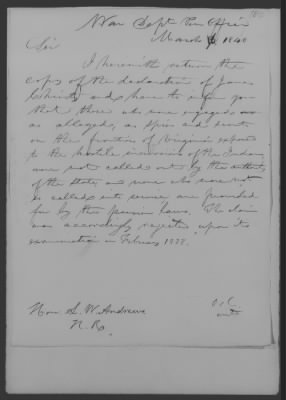 War Dept Pen Office
March 1840
Sir
I herewith return the
copy of the declaration of James
and have to inform you
that those who were engaged
as alleged, as spies and scouts
on the frontiers of Virginia exposed
to the hostile incursions of the Indians
were not called out by the authority
of the state, and none who were not
so called into service are provided
for by the pension laws. The claim
was accordingly rejected upon its
examination in February
Hon. S. W. Andrews
H. R.